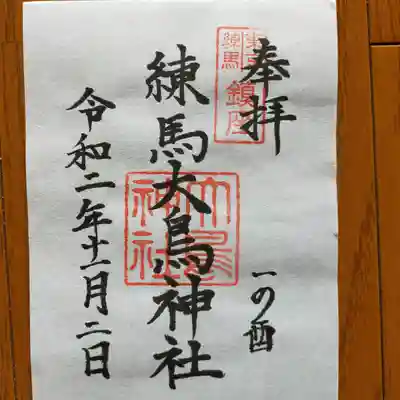 奉拝
東京
練馬
鎮座
練馬大鳥神社
大鳥
神社
一の酉
令和二年十一月二日